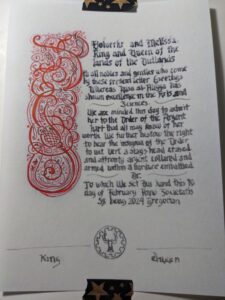 and Melissa
King and Queen of the
lands of the Outlands
to all nobles and gentles who come
by these present letter Greetings
Whereas has
shown excellence in the Arts and
Sciences
We are minded this day to admit
her to the Order of the Argent
Hart that all may know of her
worth We further bestow the right
to bear the insignia of the Order
to wit vert a stags head erased
and affronty argent collared and
armed within a bordure embattled
Or.
To which We set Our hand this 10
day of February Anno Societatis
being 2024 Gregorian
King Queen